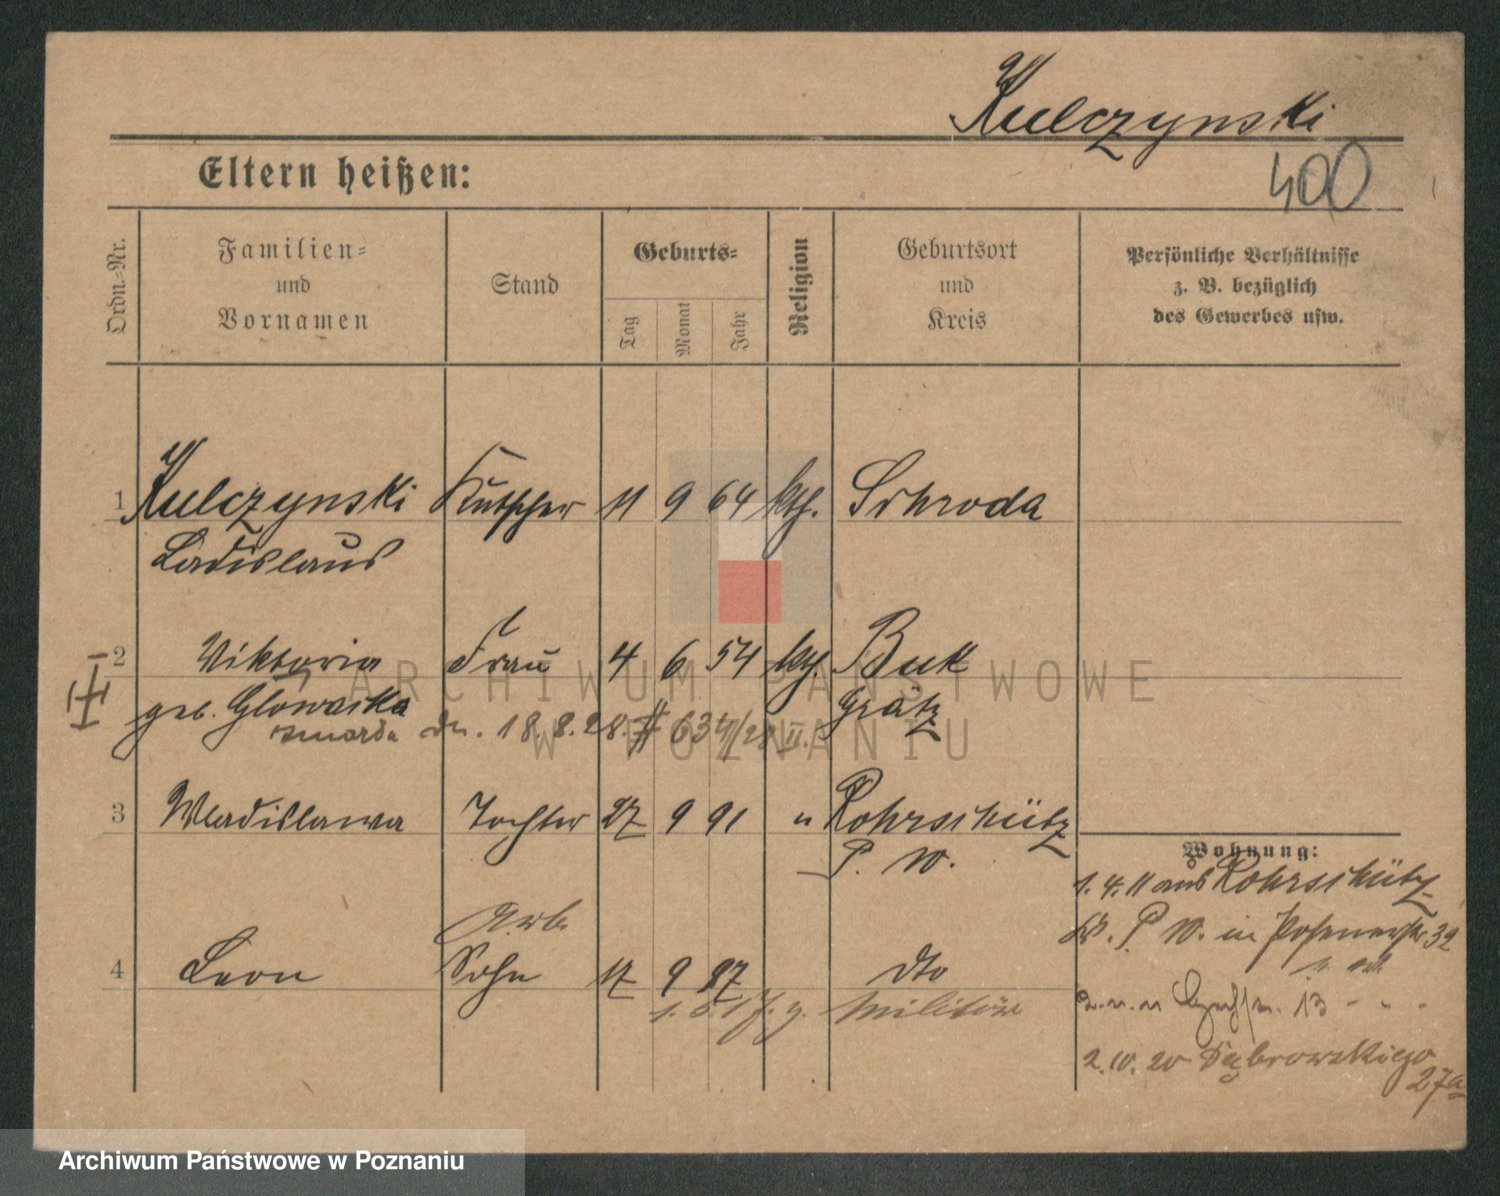 Kulczynski
400
Eltern heißen:
Ordn.-Nr.
Familien-
und
Vornamen
Stand
Geburts-
Tag
Monat
Jahr
Religion
Geburtsort
und
Kreis
Persönliche Verhältnisse
z. B. bezüglich
des Gewerbes usw.
1 Kulczynski Kutscher 11 9 64 kth. Schroda
Ladislaus
2 Viktoria Frau 4 6 54 kth. Buk
geb. Glowacka Grätz
zmarła dn. 18.8.28. # 634/28 II.
3 Wladislawa Tochter 27 9 91 " Rohrschütz
P. W.
Wohnung:
1.4.11 aus Rohrschütz
Kr. P. W. in Posenerstr 32
Arb.
4 Leon Sohn 17 9 97 dto
Militär
13 - " -
2.10.20 Dąbrowskiego
27a
ARCHIWUM PAŃSTWOWE
W POZNANIU
Archiwum Państwowe w Poznaniu